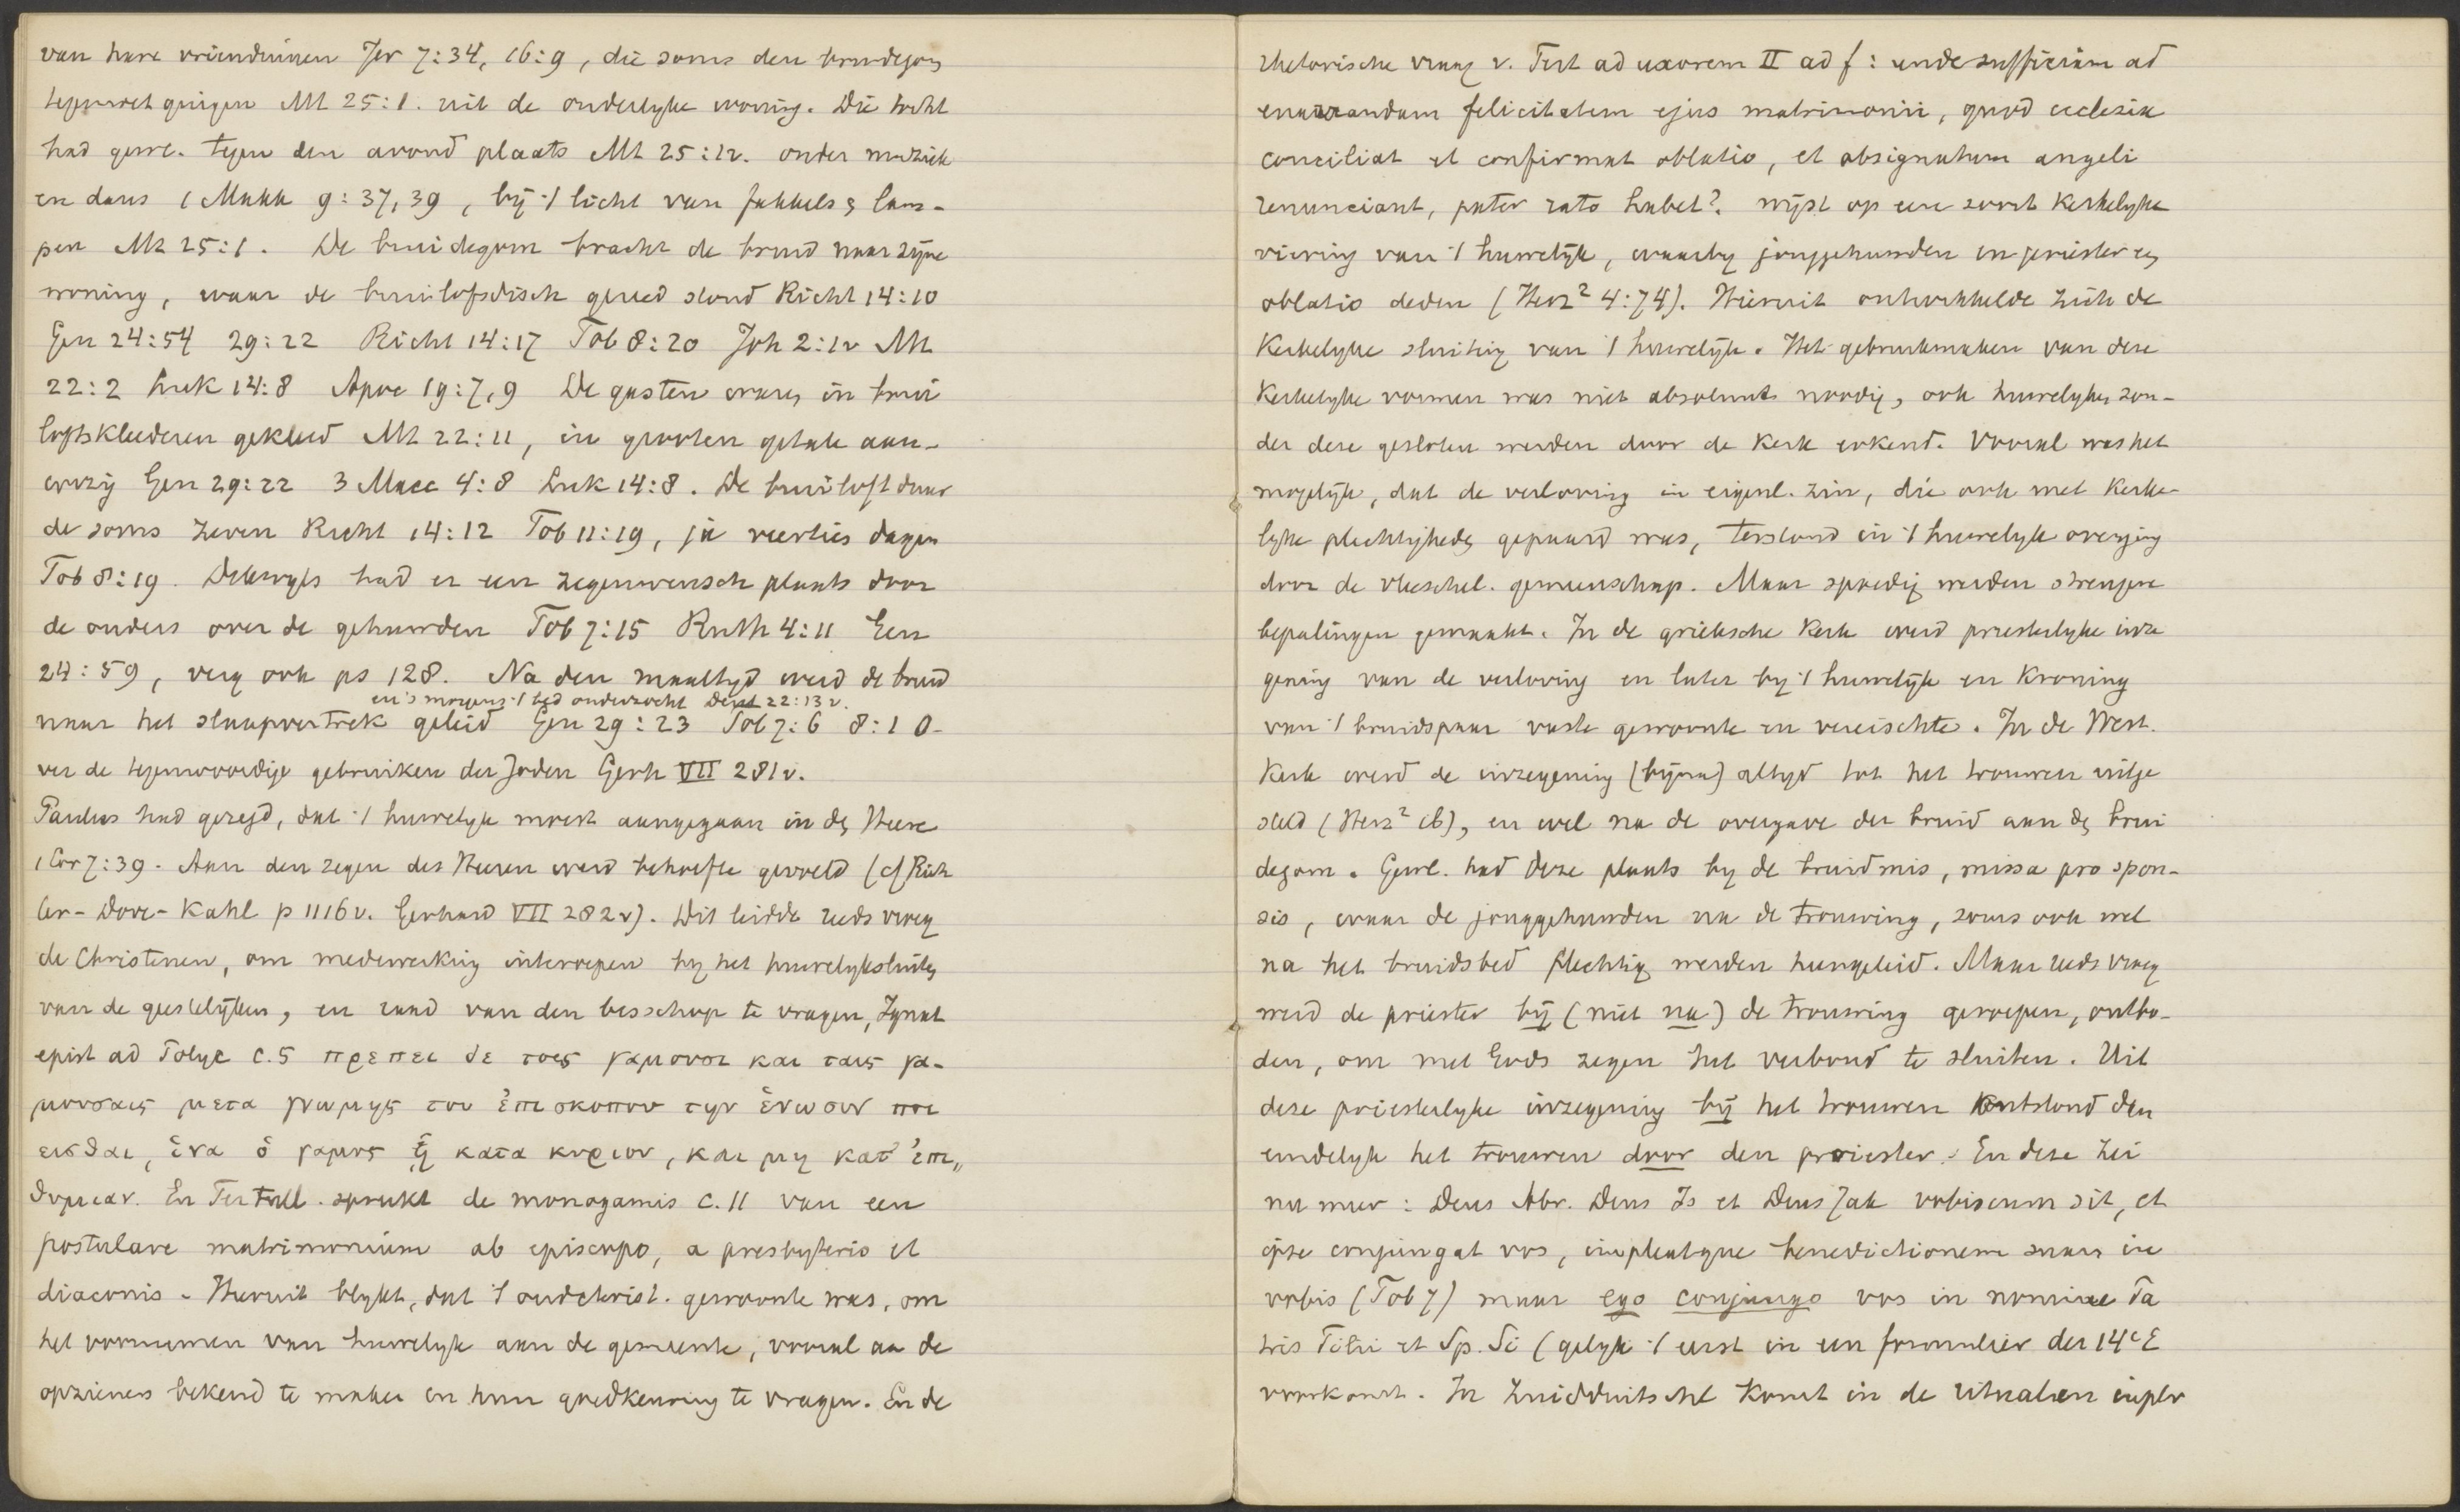 van hare vriendinnen Jer 7:34, 16:9, die soms den bruidegom
tegemoet gingen Mt 25:1. uit de ouderlyke woning. Die tocht
had gewl. tegen den avond plaats Mt 25:1v. onder muziek
en dans 1 Makk 9:37,39, bij 't licht van fakkels en lam-
pen Mt 25:1. De bruidegom bracht de bruid naar zijne
woning, waar de bruiloftsdisch gereed stond Richt 14:10
Gen 24:54 29:22 Richt 14:17 Tob 8:20 Joh 2:1v Mt
22:2 Luk 14:8 Apoc 19:7,9 De gasten waren in brui
loftskleederen gekleed Mt 22:11, in grooten getale aan-
wezig Gen 29:22 3 Macc 4:8 Luk 14:8. De bruiloft duur
de soms zeven Richt 14:12 Tob 11:19, ja veertien dagen
Tob 8:19. Dikwyls had er een zegenwensch plaats door
de ouders over de gehuwden Tob 7:15 Ruth 4:11 Gen
24:59, verg ook ps 128. Na den maaltyd werd de bruid
en 's morgens 't bed onderzocht Deut 22:13v.
naar het slaapvertrek geleid Gen 29:23 Tob 7:6 8:1 O-
ver de tegenwoordige gebruiken der Joden Gerh VII 281v.
Paulus had gezegd, dat 't huwelyk moest aangegaan in den Heere
1 Cor 7:39. Aan den zegen des Heeren werd behoefte gevoeld (cf Rich
ter-Dove-Kahl p 1116v. Gerhard VII 282v). Dit leidde reeds vroeg
de Christenen, om medewerking interoepen by het huwelyksluiten
van de geestelyken, en raad van den bisschop te vragen, Ignat
epist ad Polyc c.5 πρεπει δε τοις γαμουσι και ταις γα-
μουσαις μετα γνωμης του ἐπισκοπου την ἑνωσιν ποι
εισθαι, ἑνα ὁ γαμος ᾖ κατα κυριον, και μη κατ' ἐπι„
θυμιαν. En Tertull. spreekt de monogamis c.11 van een
postulare matrimonium ab episcopo, a presbyterio et
diaconis. Hieruit blykt, dat 't oudchrist. gewoonte was, om
het voornemen van huwelyk aan de gemeente, vooral aan de
opzieners bekend te maken en hun goedkeuring te vragen. En de
rhetorische vraag v. Tert ad uxorem II ad f: unde sufficiam ad
enarrandam felicitatem ejus matrimonii, quod ecclesia
conciliat et confirmat oblatio, et obsignatum angeli
renunciant, pater rato habet?. wijst op eene soort Kerkelyke
viering van 't huwelijk, waarby jonggehuwden en priester een
oblatio deden (Herz² 4:74). Hieruit ontwikkelde zich de
Kerkelyke sluiting van 't huwelyk. Het gebruikmaken van deze
Kerkelyke vormen was niet absoluut noodig, ook huwelyken zon-
der deze gesloten werden door de Kerk erkend. Vooral was het
mogelijk, dat de verloving in eigenl. zin, die ook met Kerke-
lyke plechtigheden gepaard was, terstond in 't huwelyk overging
door de vleeschel. gemeenschap. Maar spoedig werden strengere
bepalingen gemaakt. In de grieksche Kerk werd priesterlyke inze
gening van de verloving en later by 't huwelijk en Kroning
van 't bruidspaar vaste gewoonte en vereischte. In de West.
Kerk werd de inzegening (bijna) altyd tot het trouwen uitge
steld (Herz² ib), en wel na de overgave der bruid aan den brui
degom. Gewl. had deze plaats by de bruidmis, missa pro spon-
sis, waar de jonggehuwden na de trouwing, soms ook wel
na het bruidsbed plechtig werden heengeleid. Maar reeds vroeg
werd de priester bij (niet na) de trouwing geroepen, ontbo-
den, om met Gods zegen het verbond te sluiten. Uit
deze priesterlyke inzegening bij het trouwen ontstond dan
eindelyk het trouwen door den priester. En deze zei
nu meer: Deus Abr. Deus Is et Deus Jak vobiscum sit, et
ipse conjungat vos, impleatque benedictionem suam in
vobis (Tob 7) maar ego conjungo vos in nomine Pa
tris Filii et Sp. Si (gelyk 't eerst in een formulier der 14e E
voorkomt. In Zuidduitschl komt in de ritualen in plv